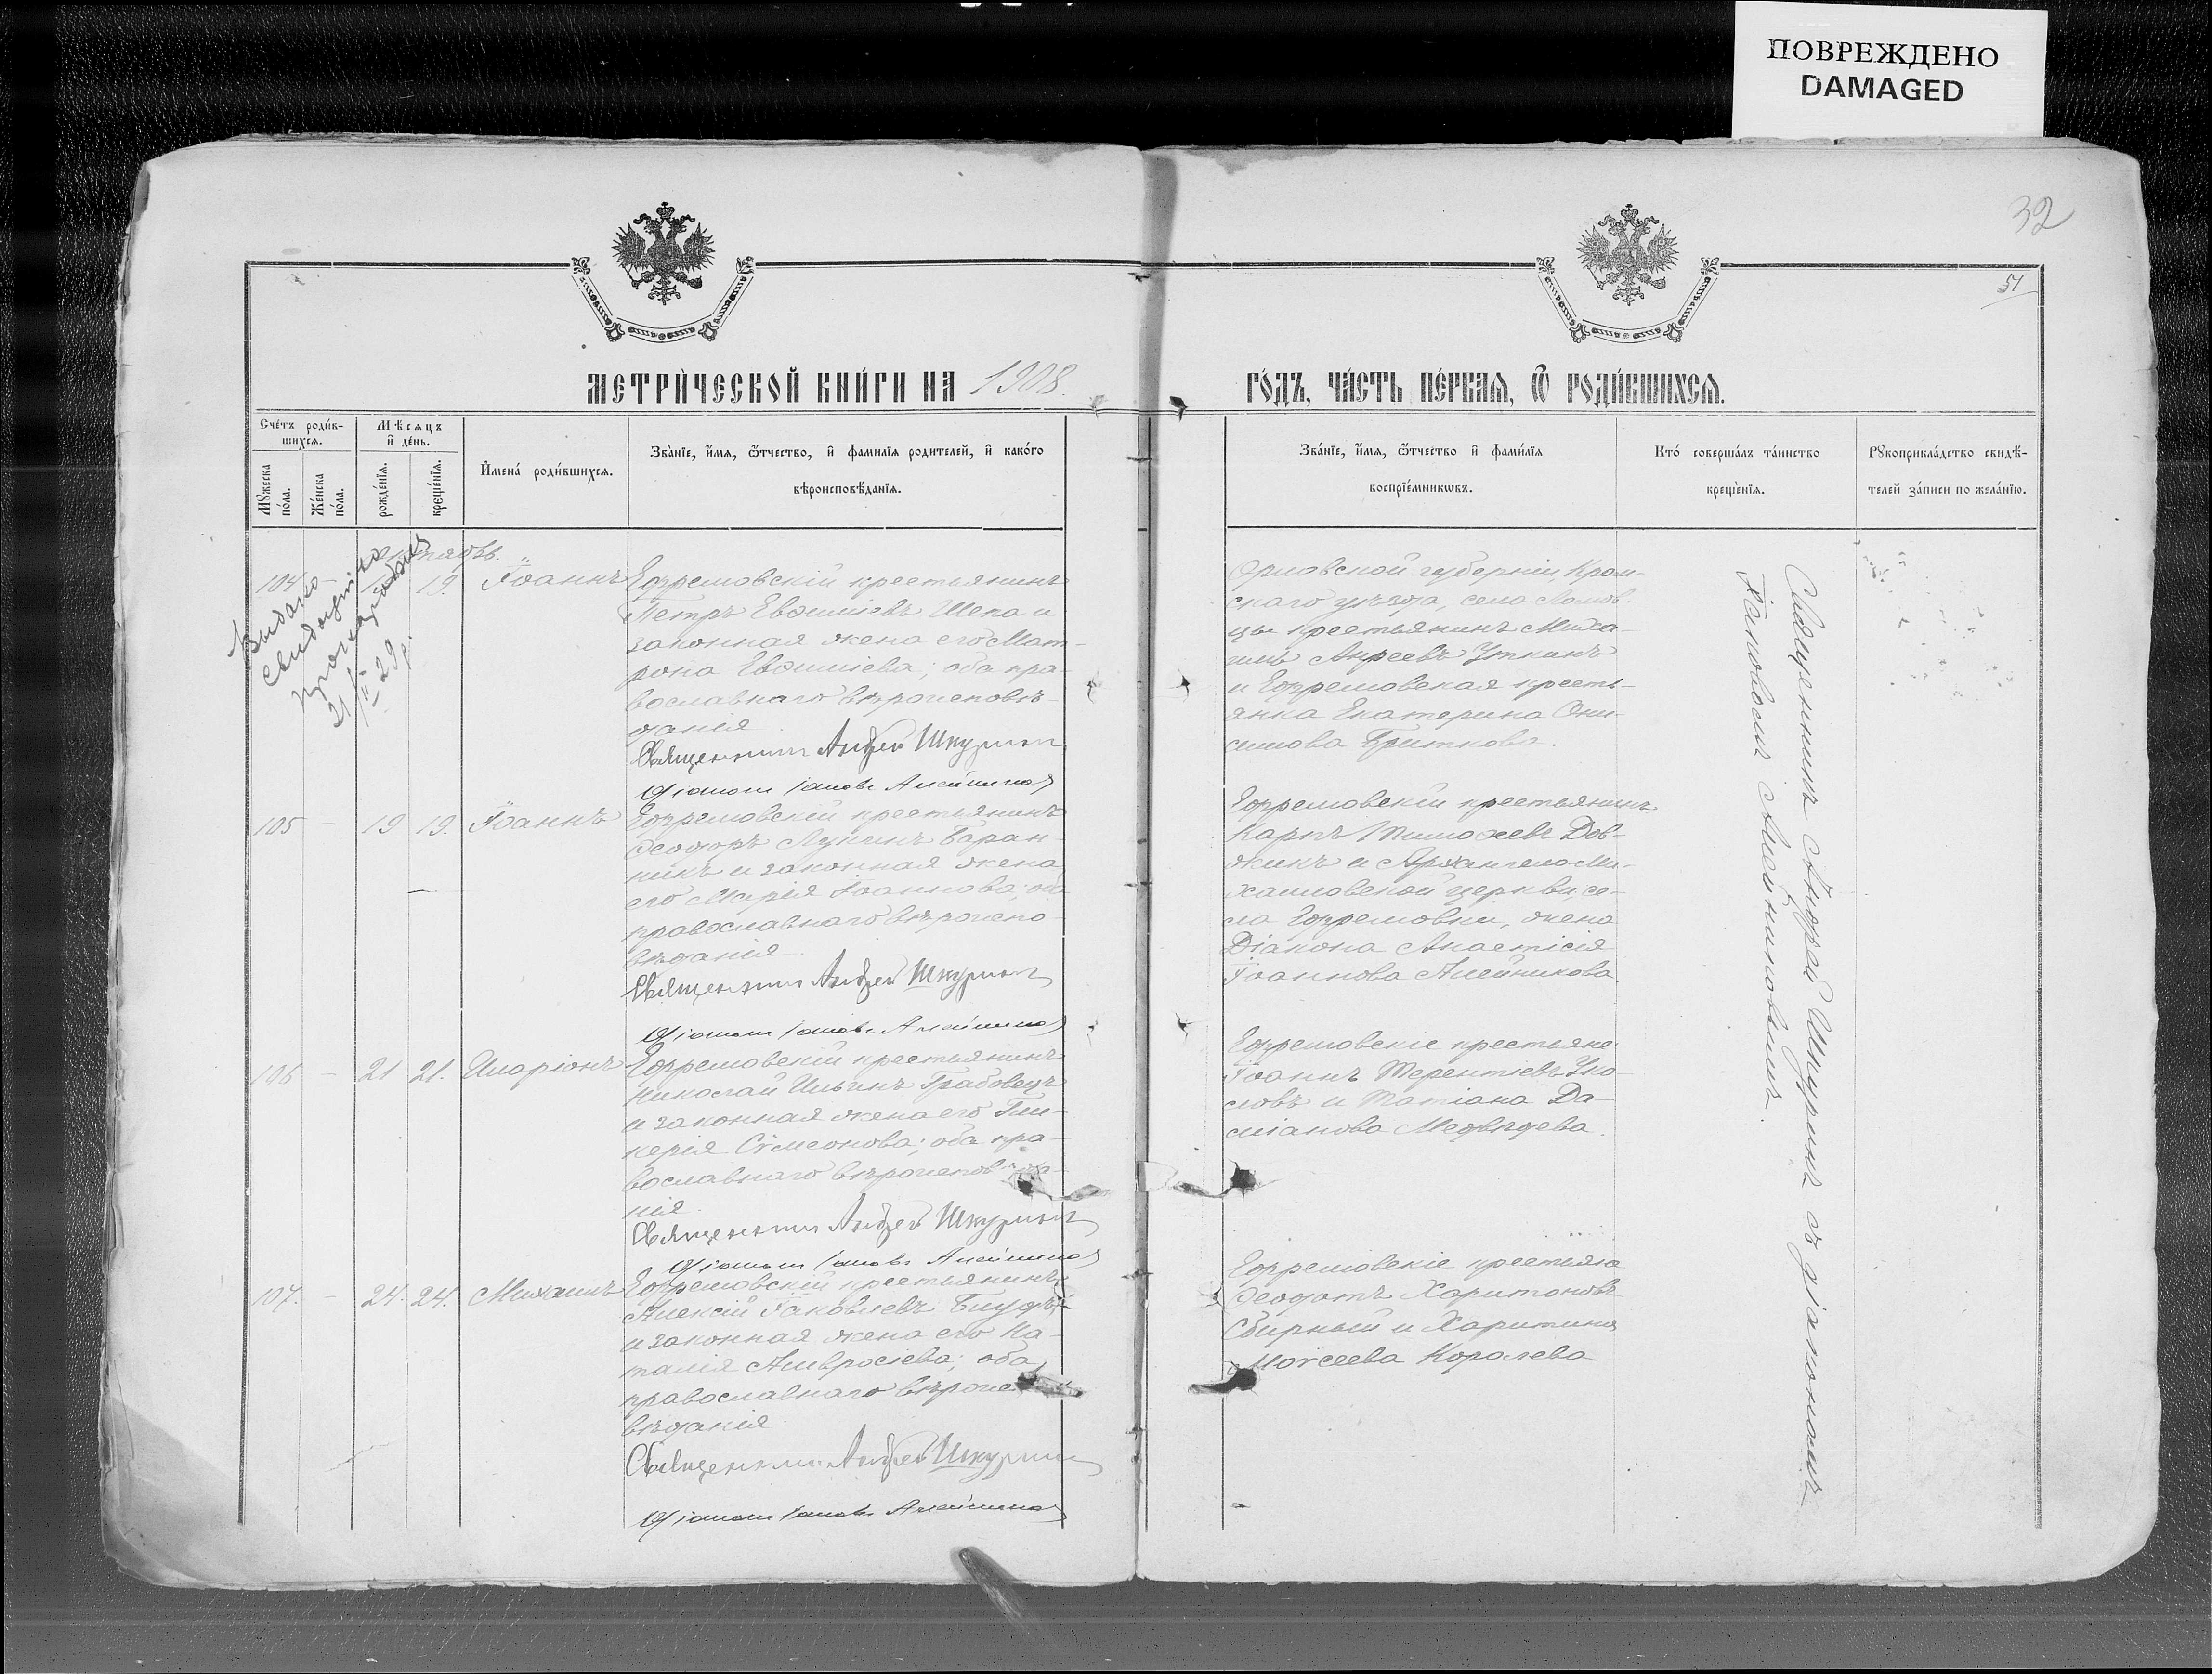 ПОВРЕЖДЕНО
DAMAGED
32
51
МЕТРИ́ЧЕСКОЙ КНИ́ГИ НА 1908
ГО́ДЪ, ЧА́СТЬ ПЕ́РВАѦ, Ѿ РОДИ́ВШИХСѦ.
Сче́тъ роди́в-
шихсѧ.
Мѣсѧцъ
и҆ де́нь.
Мꙋжеска по́ла.
Же́нска по́ла.
рожде́нїѧ.
креще́нїѧ.
И҆мена́ роди́вшихсѧ.
Зва́нїе, и҆́мѧ, ѻ҆́тчество, и҆ фамилїѧ родителей, и҆ како́го
вѣроисповѣ́данїѧ.
Зва́нїе, и҆́мѧ, ѻ҆́тчество и҆ фами́лїѧ
воспрїе́мникѡвъ.
Кто́ соверша́лъ та́инство
креще́нїѧ.
Рꙋкоприкла́дство свидѣ́-
телей за́писи по жела́нїю.
Выдано
свидетельство
21/II 29 г.
104 – 19. Іоаннъ
Ефремовскій крестьянинъ
Петръ Евѳиміевъ Шека и
законная жена его Мат-
рона Евѳиміева; оба пра-
вославнаго вѣроисповѣ-
данія
Священникъ Андрей Шкуринъ
Діаконъ Іаковъ Алейников
Орловской губерніи, Кром-
скаго уѣзда, села Ломов-
цы крестьянинъ Миха-
илъ Андреевъ Уткинъ
и Ефремовская кресть-
янка Екатерина Они-
симова Бриткова.
105 – 19 19. Іоаннъ
Ефремовскій крестьянинъ
Ѳеодоръ Лукинъ Баран-
никъ и законная жена
его Марія Іоаннова; оба
православнаго вѣроиспо-
вѣданія.
Священникъ Андрей Шкуринъ
Діаконъ Іаковъ Алейников
Ефремовскій крестьянинъ
Карпъ Тимоѳеевъ Дов-
жикъ и Архангело-Ми-
хаиловской церкви, се-
ла Ефремовки, жена
Діакона Анастасія
Іоаннова Алейникова.
106 – 21 21. Иларіонъ
Ефремовскій крестьянинъ
Николай Ильинъ Грабовецъ
и законная жена его Гли-
керія Сѵмеонова; оба пра-
вославнаго вѣроисповѣда-
нія.
Священникъ Андрей Шкуринъ
Діаконъ Іаковъ Алейников
Ефремовскіе крестьяне
Іоаннъ Терентіевъ Уко-
ловъ и Татіана Да-
міанова Медвѣдева.
107. – 24. 24. Михаилъ
Ефремовскій крестьянинъ
Алексій Іаковлевъ
и законная жена его На-
талія Амвросіева; оба
православнаго вѣроиспо-
вѣданія
Священникъ Андрей Шкуринъ
Діаконъ Іаковъ Алейников
Ефремовскіе крестьяне
Ѳеодотъ Харитоновъ
Сбирный и Харитина
Моѵсеева Королева
Священникъ Андрей Шкуринъ съ діакономъ
Іаковомъ Алейниковымъ.